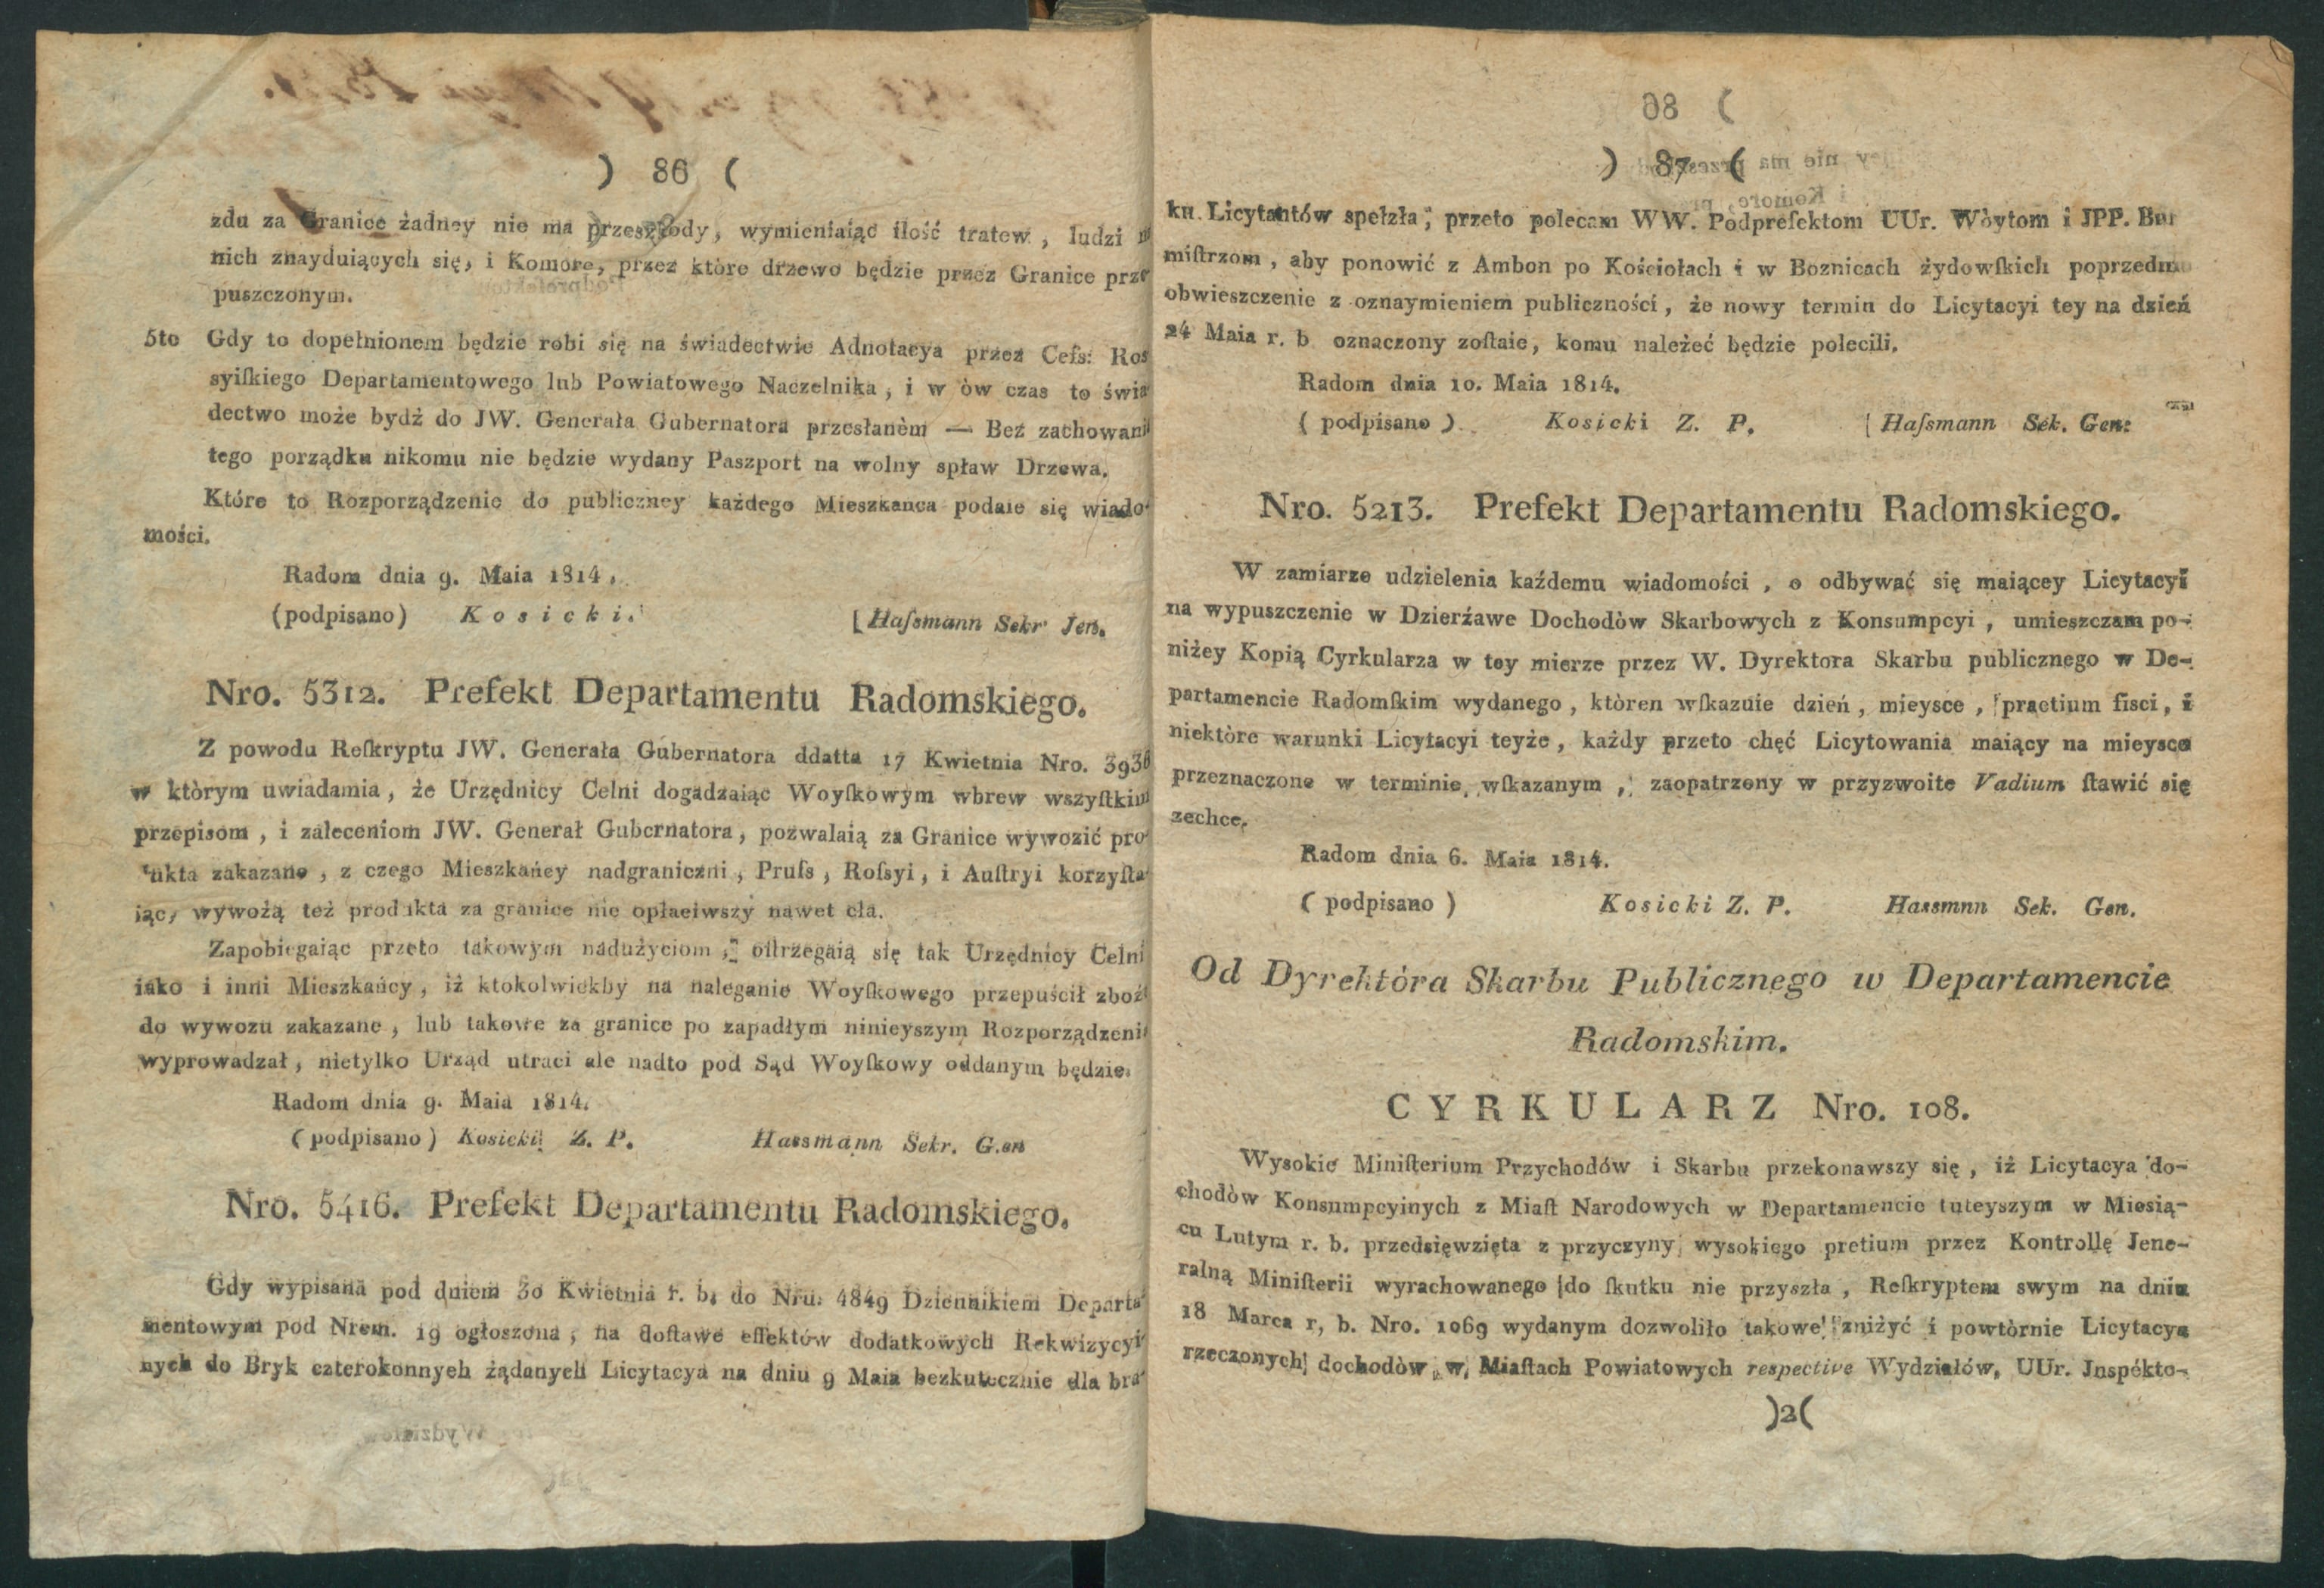 ) 86 (
zdu za Granice żadney nie ma przeszkody, wymieniaiąc ilość tratew, ludzi
nich znayduiących się, i Komore, przez które drzewo będzie przez Granice prze
puszczonym.
5to Gdy to dopełnionem będzie robi się na świadectwie Adnotacya przez Ceſs: Ros
syiſkiego Departamentowego lub Powiatowego Naczelnika, i w ów czas to świa
dectwo może bydź do JW. Generała Gubernatora przesłaném — Bez zachowani
tego porządku nikomu nie będzie wydany Paszport na wolny spław Drzewa.
Które to Rozporządzenie do publiczney każdego Mieszkańca podaie się wiado-
mości.
Radom dnia 9. Maia 1814.
(podpisano) Kosicki. [Haſsmann Sekr Jen.
Nro. 5312. Prefekt Departamentu Radomskiego.
Z powodu Reſkryptu JW. Generała Gubernatora ddatta 17 Kwietnia Nro. 3936
w którym uwiadamia, że Urzędnicy Celni dogadzaiąc Woyſkowym wbrew wszyſtkim
przepisom, i zaleceniom JW. Generał Gubernatora, pozwalaią za Granice wywozić pro-
ukta zakazane, z czego Mieszkańcy nadgraniczni, Pruſs, Roſsyi, i Auſtryi korzyſta-
iąc, wywożą też produkta za granice nie opłaciwszy nawet cła.
Zapobiegaiąc przeto takowym nadużyciom, oſtrzegaią się tak Urzędnicy Celni
iako i inni Mieszkańcy, iż ktokolwiekby na naleganie Woyſkowego przepuścił zboż
do wywozu zakazane, lub takowe za granice po zapadłym ninieyszym Rozporządzeni
wyprowadzał, nietylko Urząd utraci ale nadto pod Sąd Woyſkowy oddanym będzie.
Radom dnia 9. Maia 1814.
(podpisano) Kosicki Z. P. Hassmann Sekr. G.en
Nro. 5416. Prefekt Departamentu Radomskiego.
Gdy wypisana pod dniem 30 Kwietnia r. b. do Nru. 4849 Dziennikiem Departa-
mentowym pod Nrem. 19 ogłoszona, na doſtawe effektów dodatkowych Rekwizycyi-
nych do Bryk czterokonnych żądanych Licytacya na dniu 9 Maia bezkutecznie dla bra-
) 87 (
ku Licytantów spełzła, przeto polecam WW. Podprefektom UUr. Wòytom i JPP. Bur
miſtrzom, aby ponowić z Ambon po Kościołach i w Boznicach żydowſkich poprzednio
obwieszczenie z oznaymieniem publiczności, że nowy termin do Licytacyi tey na dzień
24 Maia r. b oznaczony zoſtaie, komu należeć będzie polecili.
Radom dnia 10. Maia 1814.
(podpisano) Kosicki Z. P. [Haſsmann Sek. Gen:
Nro. 5213. Prefekt Departamentu Radomskiego.
W zamiarze udzielenia każdemu wiadomości, o odbywać się maiącey Licytacyi
na wypuszczenie w Dzierźawe Dochodòw Skarbowych z Konsumpcyi, umieszczam po-
niżey Kopią Cyrkularza w tey mierze przez W. Dyrektora Skarbu publicznego w De-
partamencie Radomſkim wydanego, któren wſkazuie dzień, mieysce, praetium fisci, i
niektòre warunki Licytacyi teyże, każdy przeto chęć Licytowania maiący na mieysce
przeznaczone w terminie wſkazanym, zaopatrzony w przyzwoite Vadium ſtawić się
zechce.
Radom dnia 6. Maia 1814.
(podpisano) Kosicki Z. P. Hassmnn Sek. Gen.
Od Dyrektóra Skarbu Publicznego w Departamencie
Radomskim.
CYRKULARZ Nro. 108.
Wysokie Miniſterium Przychodów i Skarbu przekonawszy się, iż Licytacya do-
chodòw Konsumpcyinych z Miaſt Narodowych w Departamencie tuteyszym w Miesią-
cu Lutym r. b. przedsięwzięta z przyczyny wysokiego pretium przez Kontrollę Jene-
ralną Miniſterii wyrachowanego do ſkutku nie przyszła, Reſkryptem swym na dniu
18 Marca r, b. Nro. 1069 wydanym dozwoliło takowe zniżyć i powtòrnie Licytacya
rzeczonych dochodòw w Miaſtach Powiatowych respective Wydziałów, UUr. Jnspékto-
)2(